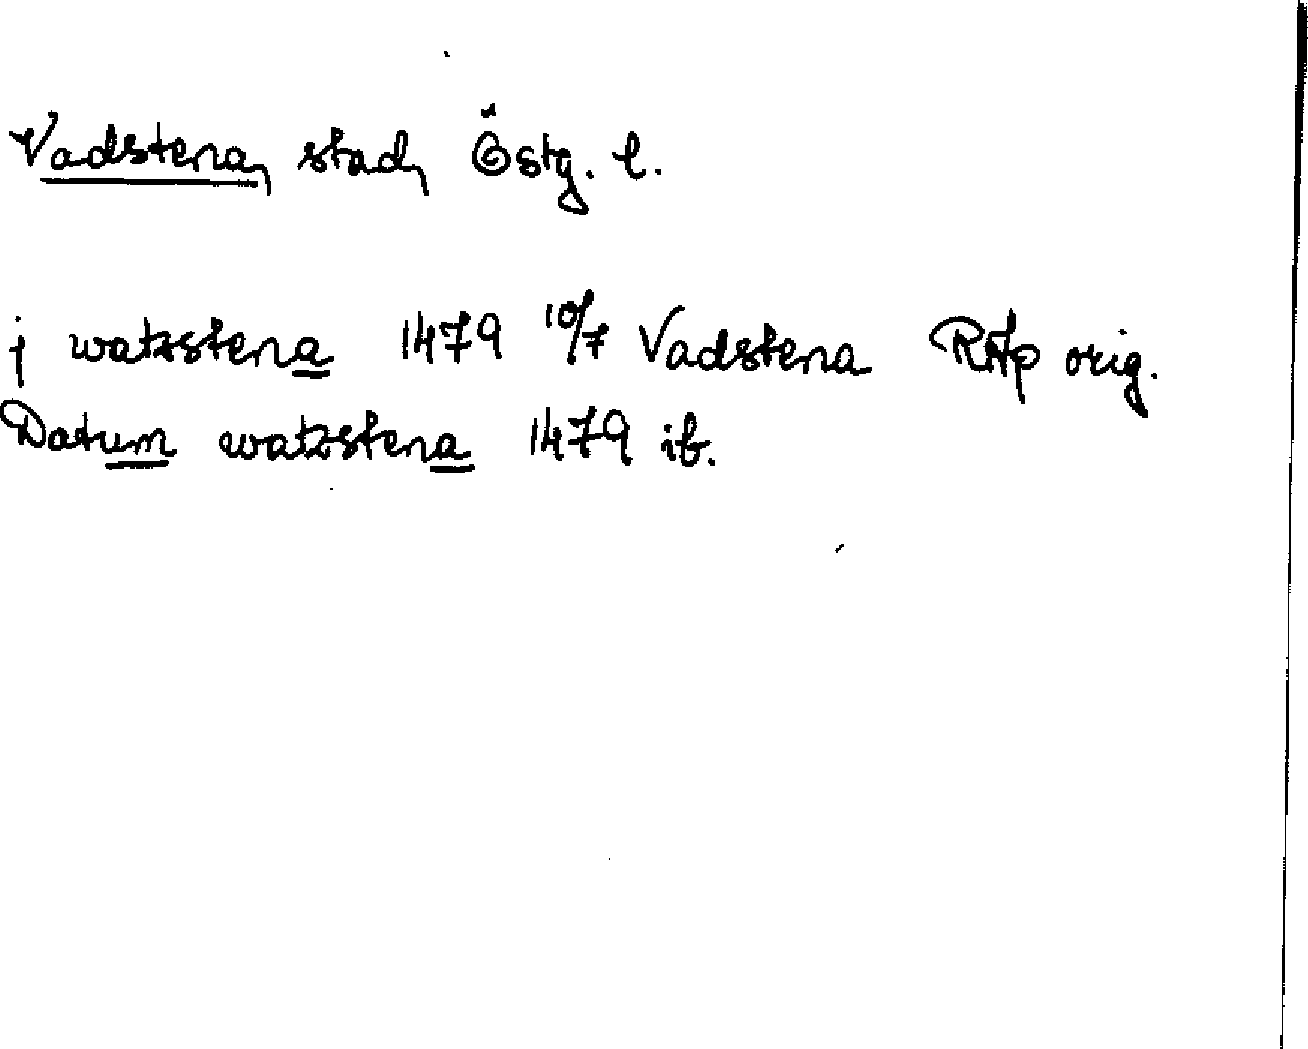 Vadstena, stad, Östg. l.
j watzstena 1479 10/7 Vadstena RAp orig.
Datum watzstena 1479 ib.